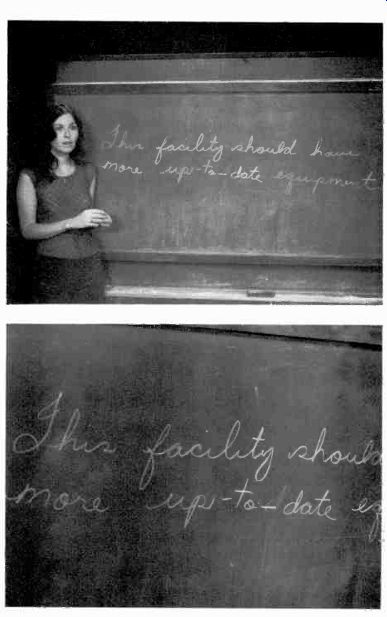 This facility should have
more up-to-date equipment
This facility should
more up-to-date eq